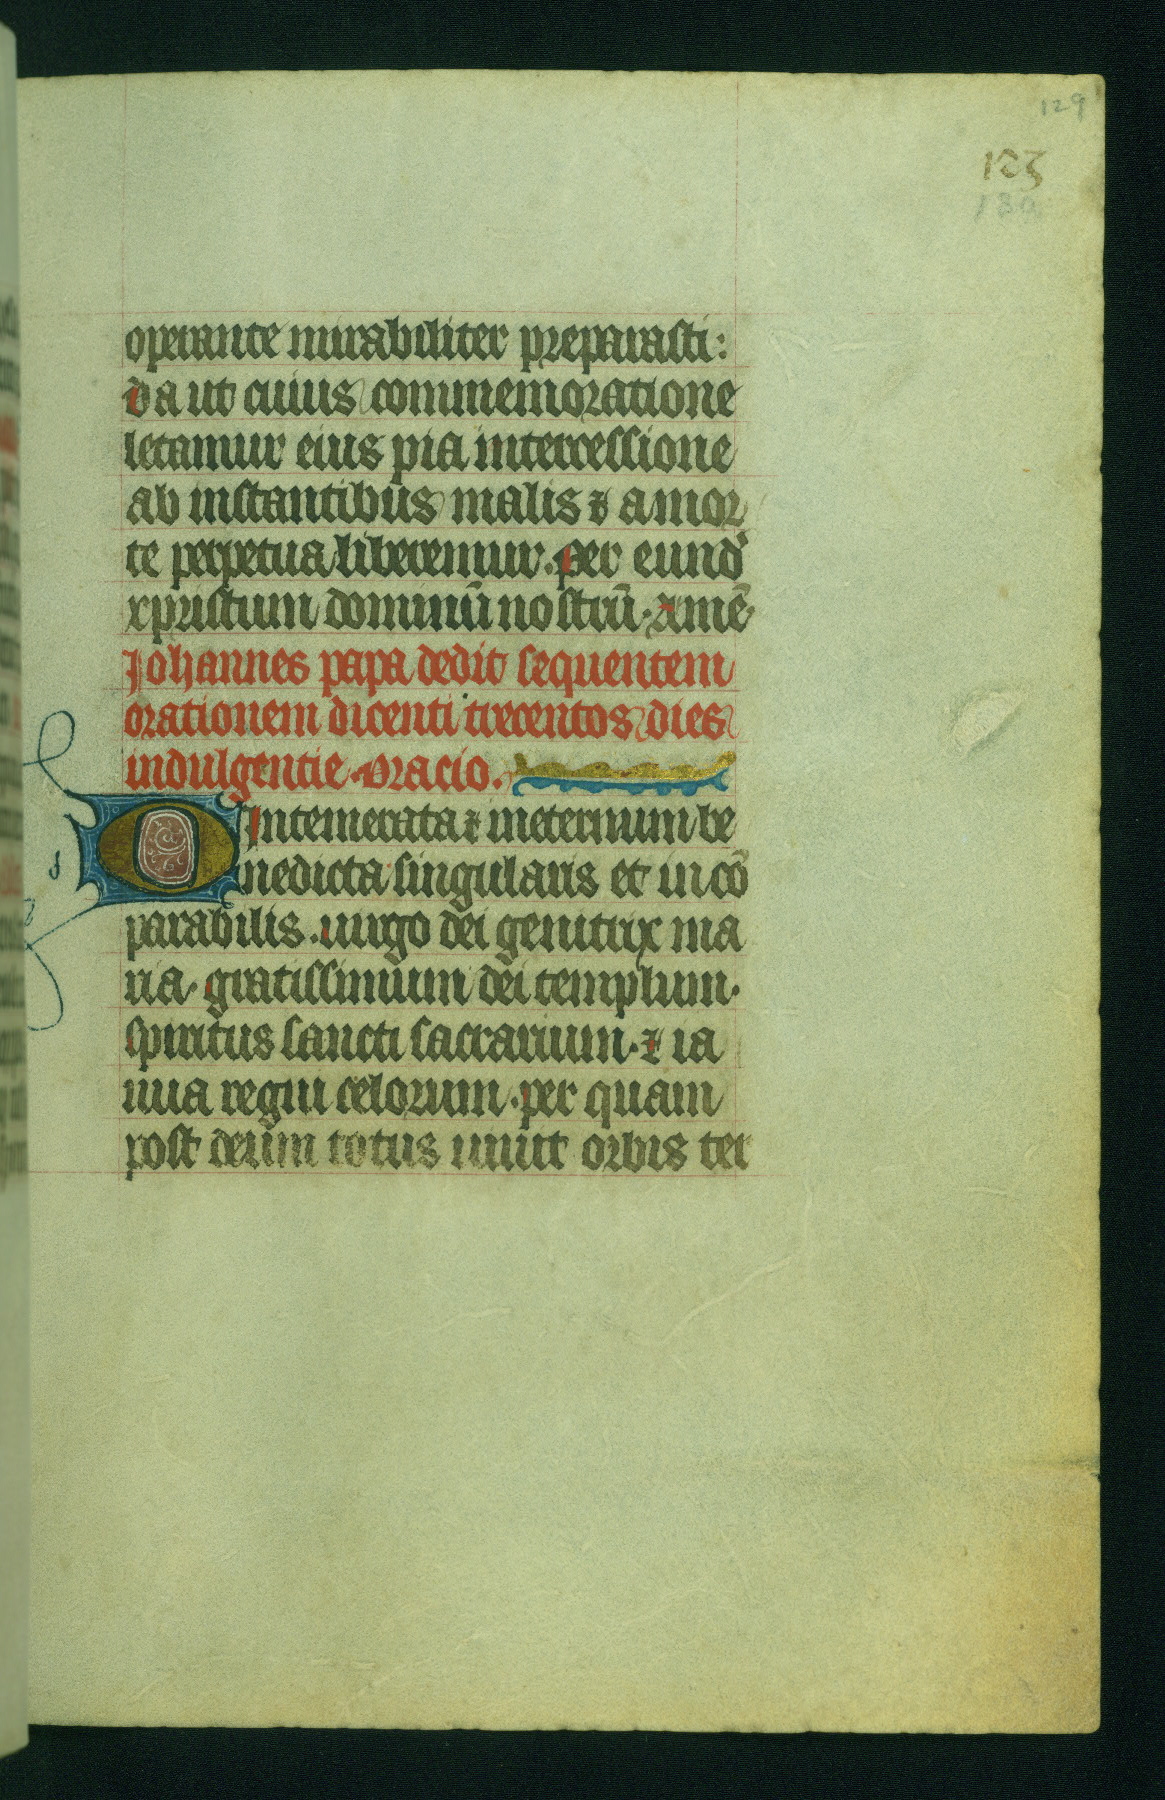 129
123
130
operante mirabiliter preparasti:
da ut cuius commemoratione
letamur eius pia intercessione
ab instantibus malis ⁊ a mor
te perpetua liberemur. per eund᾽
xpristum dominū nostrū. amē.
Johannes papa dedit sequentem
orationem dicenti trecentos dies
indulgentie. oracio.
O Intemerata ⁊ ineternum be
nedicta singularis et incō
parabilis. uirgo dei genitrix ma
ria. gratissimum dei templum.
spiritus sancti sacrarium. ⁊ ia
nua regni celorum. per quam
post deum totus uiuit orbis ter